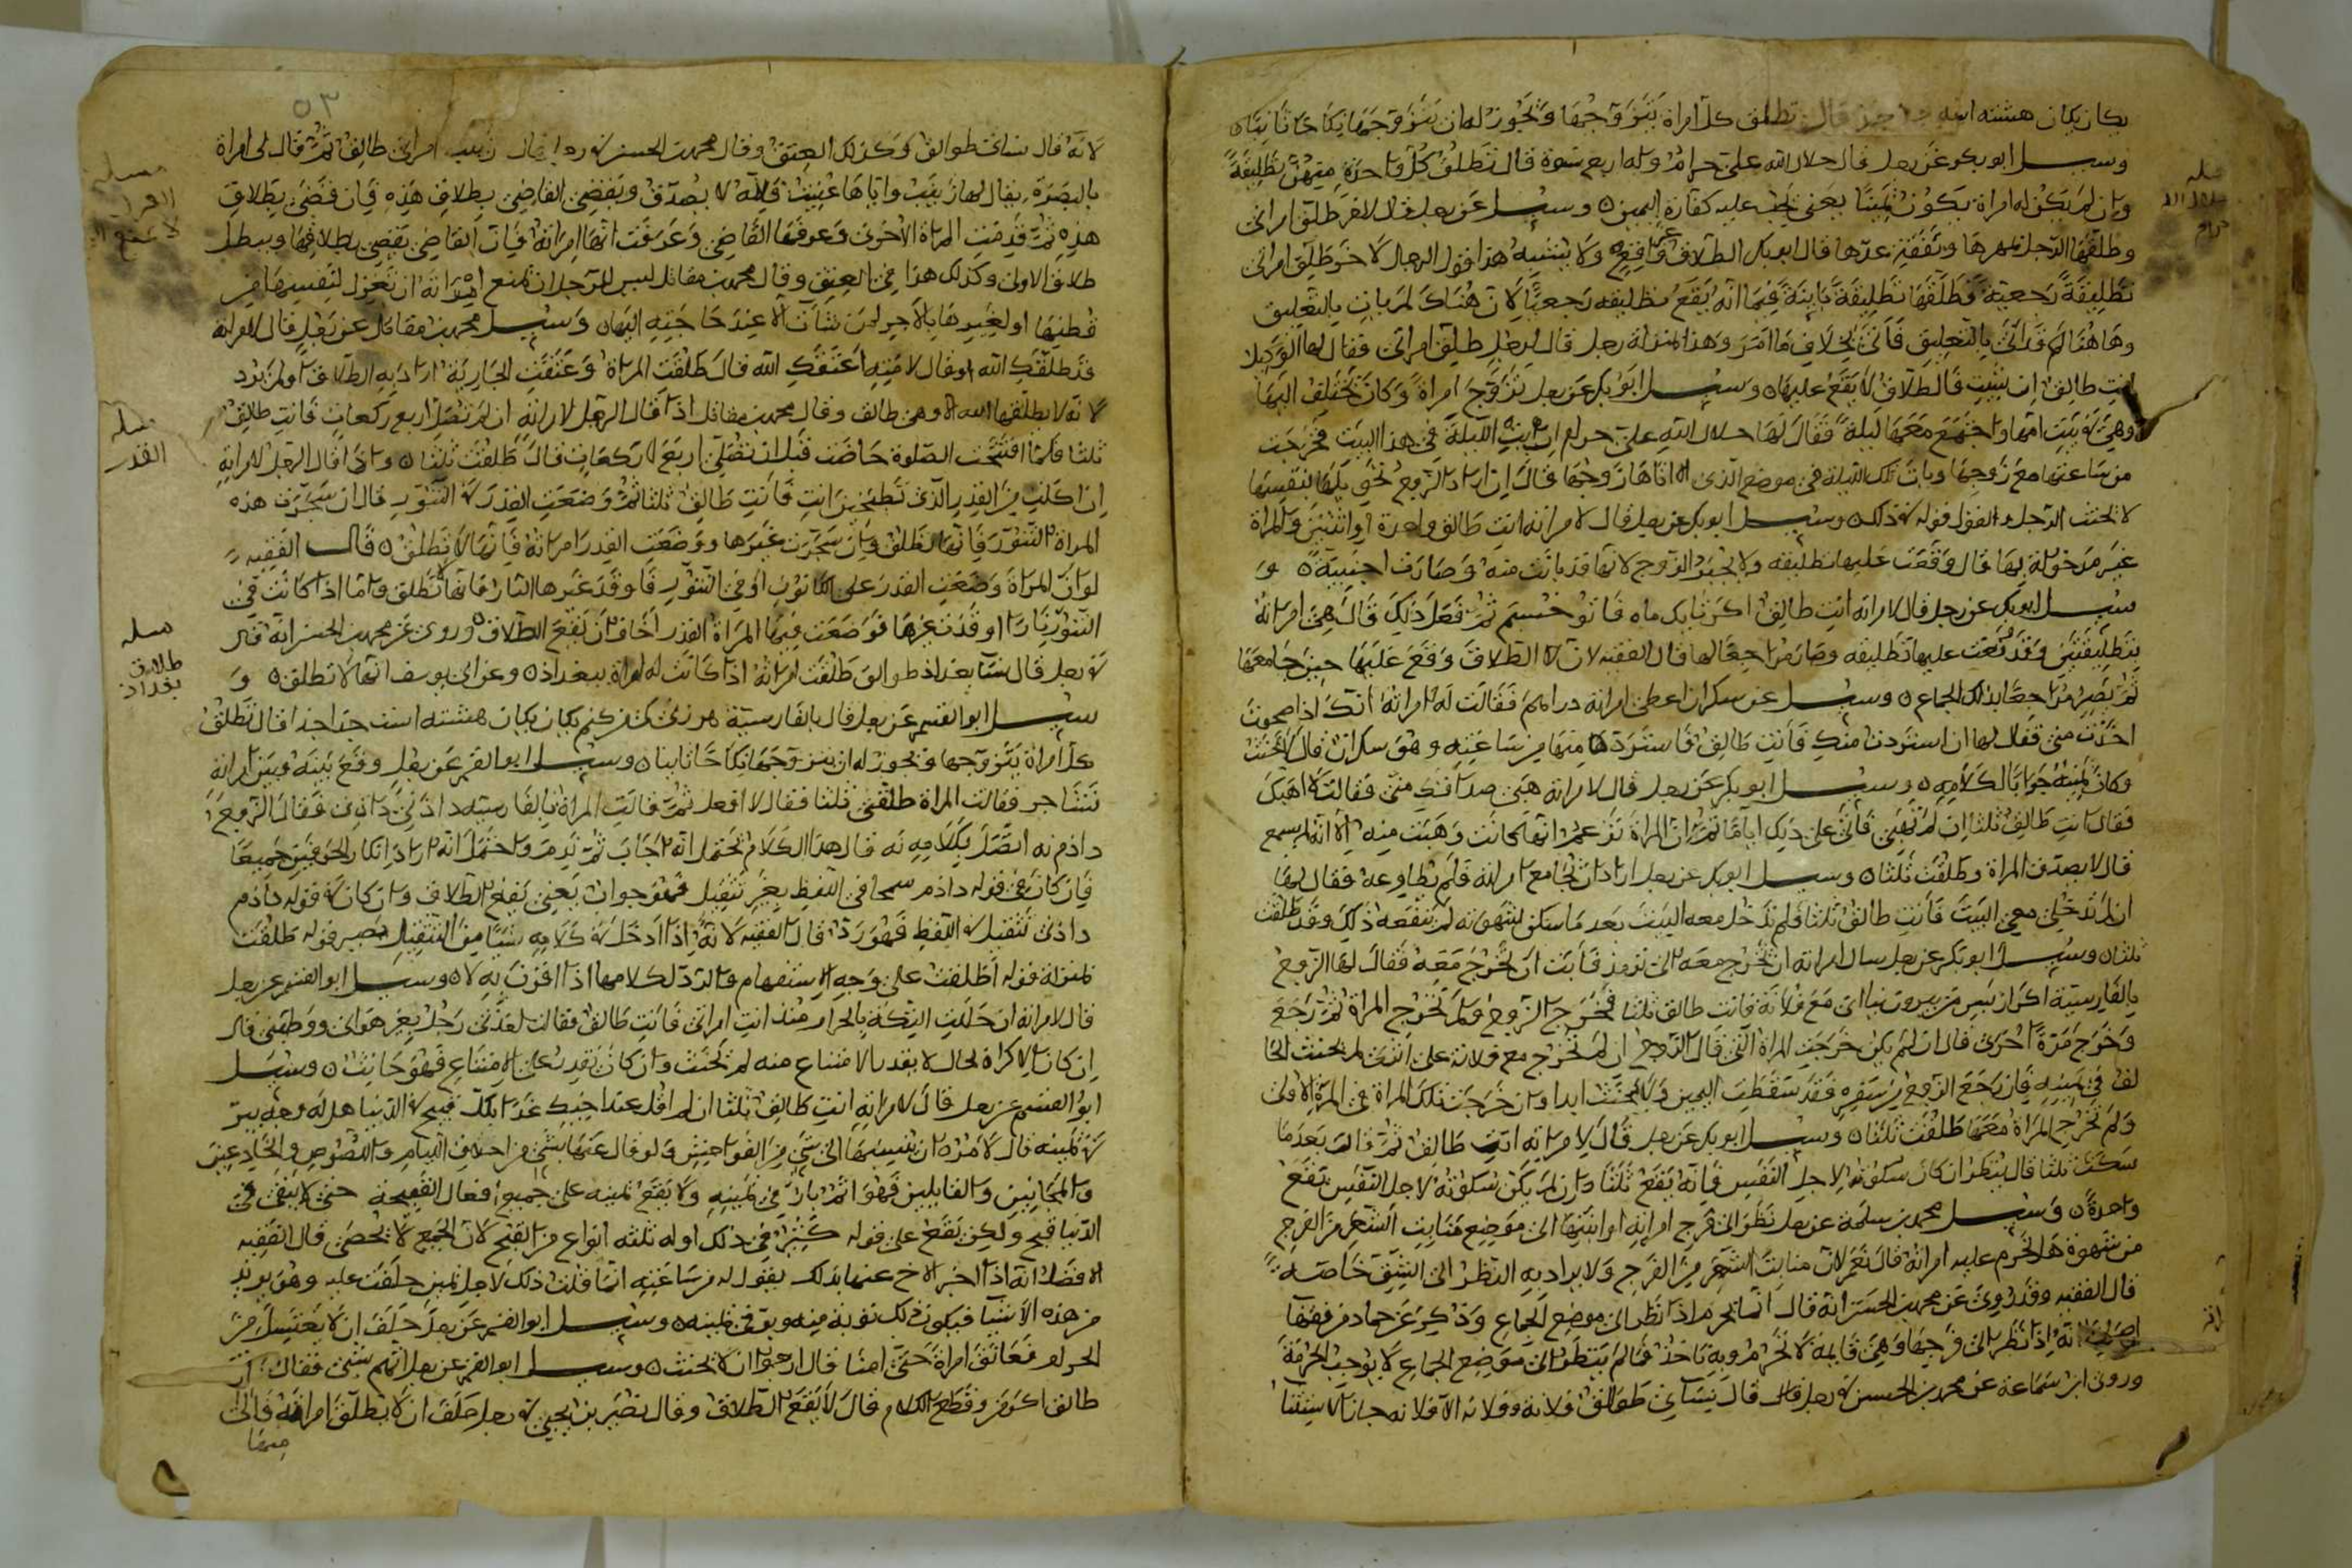 بكان بكان هشته است جدا جدا قال تطلق كل امراة يتزوجها ويجوز له ان يتزوجها نكاحا ثانيا
وسيل ابو بكر عن رجل قال حلال الله علي حرام وله اربع نسوة قال تطلق كل واحدة منهن تطليقة
وان لم يكن له امراة يكون يمينا يعني يجب عليه كفارة اليمين وسيل عن رجل قال لاخر طلق امراتي
وطلقها الرجل بمهرها ونفقة عدتها قال ابو بكر الطلاق واقع ولا يشبه هذا قول الرجل لاخر طلق امراتي
تطليقة رجعية فطلقها تطليقة باينة فيها انه يقع تطليقه رجعيا لان هناك لم يات بالتعليق
وهاهنا قد اتى بالتعليق فاتى بخلاف ما امر وهذا بمنزلة رجل قال لرجل طلق امراتي فقال لها الوكيل
انت طالق ان شيت فالطلاق لا يقع عليها وسيل ابو بكر عن رجل تزوج امراة وكان يختلف اليها
وهي في بيت امها واجتمع معها ليلة فقال لها حلال الله علي حرام ان بت الليلة في هذا البيت فخرجت
من ساعتها مع زوجها وباتت تلك الليلة في موضع الذي اتاها زوجها قال ان اراد الزوج نحويلها بنفسها
لا يحنث الرجل والقول قوله في ذلك وسيل ابو بكر عن رجل قال لامراته انت طالق واحدة او اثنتين والمراة
غير مدخولة بها قال وقعت عليها تطليقه ولا يخير الزوج لانها قد بانت منه وصارت اجنبية و
سيل ابو بكر عن رجل قال لامراته انت طالق اكر تا يك ماه ثم فعل ذلك قال هي امراته
بتطليقتين وقد وقعت عليها تطليقه وصار مراجعا لها قال الفقيه لان الطلاق وقع عليها حين جامعها
ثم يصير مراجعا بذلك الجماع وسيل عن سكران اعطى امراته دراهم فقالت له امراته انك اذا صحوت
اخذت مني فقال لها ان استردت منك فانت طالق فاستردها منها من ساعته وهو سكران قال لا يحنث
وكان يمينه جوابا لكلامه وسيل ابو بكر عن رجل قال لامراته هبي صداقك مني فقالت لا اهبك
فقال انت طالق ثلثا ان لم تهبي فاتى على ذلك اياما ثم ان المراة تزعم انها كانت وهبت منه الا انه لم يسمع
قال لا يصدق المراة وطلقت ثلثا وسيل ابو بكر عن رجل اراد ان يجامع امراته فلم تطاوعه فقال لها
ان لم تدخلي معي البيت فانت طالق ثلثا فلم تدخل معه البيت بعد ما سكن شهوته لم ينفعه ذلك وقد طلقت
ثلثا وسيل ابو بكر عن رجل سال امراته ان تخرج معه الى ترمذ فابت ان تخرج معه فقال لها الزوج
بالفارسية مع فلانة فانت طالق ثلثا فخرج الزوج ولم تخرج المراة ثم رجع
وخرج مرة اخرى قال ان لم يكن خرجت المراة التي قال الزوج ان لم تخرج مع فلانه على اثرى لم يحنث الحا
لف في يمينه فان رجع الزوج من سفره فقد سقطت اليمين ولا يحنث ابدا وان خرجت تلك المراة في المرة الاولى
ولم تخرج المراة معها طلقت ثلثا وسيل ابو بكر عن رجل قال لامراته انت طالق ثم قال بعد ما
سكت ثلثا قال ينظر ان كان سكوته لاجل النفس فانه يقع ثلثا وان لم يكن سكوته لاجل النفس تقع
واحدة وسيل محمد بن سلمة عن رجل نظر الى فرج امراته او ابنتها الى موضع منابت الشعر من الفرج
من شهوة هل تحرم عليه امراته قال نعم لان منابت الشعر من الفرج ولا يراد به النظر الى الشق خاصه
قال الفقيه وقد روي عن محمد بن الحسن انه قال انما يحرم اذا نظر الى موضع الجماع وذكر عن حماد من فقها
انه اذا نظر الى فرجها وهي قايمة لا تحرم وبه ناخذ فما لم ينظر الى موضع الجماع لا يوجب الحرمة
وروى ابن سماعة عن محمد بن الحسن في رجل قال نساي طوالق فلانة وفلانه الا فلانه جاز الاستثنا
مسله
حلال الله
حرام
٥٣
لانه قال نساي طوالق وكذلك العتق وقال محمد بن الحسن في رجل قال زينب امراتي طالق ثم قال لي امراة
بالبصرة يقال لها زينب واياها عنيت فانه لا يصدق ويقضي القاضي بطلاق هذه فان قضى بطلاق
هذه ثم قدمت المراة الاخرى وعرفها القاضي وعرفت انها امراته فان القاضي يقضي بطلاقها ويبطل
طلاق الاولى وكذلك هذا في العتق وقال محمد بن مقاتل ليس للرجل ان يمنع امراته ان تغزل لنفسها من
قطنها او لغيرها بالاجر لمن شات الا عند حاجته اليها وسيل محمد بن مقاتل عن رجل قال لامراته
قد طلقك الله او قال لامته اعتقك الله قال طلقت المراة وعتقت الجارية اراد به الطلاق او لم يرد
لانه لا يطلقها الله الا وهي طالق وقال محمد بن مقاتل اذا قال الرجل لامراته ان لم تصل اربع ركعات فانت طالق
ثلثا فلما افتتحت الصلوة حاضت قبل ان تصلي اربع ركعات قال طلقت ثلثا واذا قال الرجل لامراته
ان اكلت من القدر الذي تطبخين انت فانت طالق ثلثا ثم وضعت القدر في التنور قال ان سجرت هذه
المراة التنور فانها تطلق وان سجرت غيرها ووضعت القدر امراته فانها لا تطلق قال الفقيه
لو ان المراة وضعت القدر على الكانون او في التنور فاوقد غيرها النار فانها لا تطلق واما اذا كانت في
التنور نار اوقدت غيرها فوضعت فيها المراة القدر اخاف ان يقع الطلاق وروي عن محمد بن الحسن انه قال
في رجل قال نسا بغداد طوالق طلقت امراته اذا كانت له امراة ببغداد وعن ابي يوسف انها لا تطلق و
سيل ابو القسم عن رجل قال بالفارسية هر زن كه من زن كنم بكان بكان هشته است جدا جدا قال تطلق
كل امراة يتزوجها ويجوز له ان يتزوجها نكاحا ثانيا وسيل ابو القسم عن رجل وقع بينه وبين امراته
تشاجر فقالت المراة طلقني ثلثا فقال لا افعل ثم قالت المراة بالفارسيه دادني دادني فقال الزوج
دادم نه اتصل بكلامه نه قال هذا الكلام يحتمل انه اجاب ثم ندم واحتمل انه اراد انكار الحرفين جميعا
فان كان في قوله دادم سمحا في اللفظ بغير تثقيل فهو جواب يعني يقع الطلاق وان كان في قوله دادم
دادني تثقيل في اللفظ فهو رد قال الفقيه لانه اذا ادخل في كلامه شيا من التثقيل يصير قوله طلقت
بمنزلة قوله اطلقت على وجه الاستفهام والرد لكلامها اذا اقرن به لا وسيل ابو القسم عن رجل
قال لامراته ان حللت التكة بالحرام منذ انت امراتي فانت طالق فقالت لقد اخذني رجل بغير هواى ووطيني قال
ان كان الاكراه لحال لا يقدر الامتناع منه لم يحنث وان كان تقدر على الامتناع فهو حانث وسيل
ابو القسم عن رجل قال لامراته انت طالق ثلثا ان لم اقل عند اخيك غدا بكل قبيح في الدنيا هل له وجه يبر
في يمينه قال لامره ان ينسبها الى شي من الفواحش ولو قال عنها بشي من اخلاق الليام واللصوص والخادعين
والمخانيين والقايلين فهو اثم بار في يمينه ولا يقع يمينه على جميع افعال القبيحة حتى لا يبقى في
الدنيا قبيح ولكن يقع على قوله كثير في ذلك اوله ثلثه انواع من القبح لان الجمع لا يحصى قال الفقيه
الافضل انه اذا اخبر الاخ عنها بذلك يقول له من ساعته انما قلت ذلك لاجل يمين حلفت عليه وهو بري
من هذه الاشيا فيكون ذلك توبة منه وبر في يمينه وسيل ابو القسم عن رجل حلف ان لا يغتسل من
الحرام فعانق امراة حتى امنا قال ارجو ان لا يحنث وسيل ابو القسم عن رجل اتهم بشي فقال ان
طالق اكر من وقطع الكلام قال لا يقع الطلاق وقال نصير بن يحيى في رجل حلف ان لا يطلق امراته فالى
منها
مسله
القدر
مسله
طلاق
بغداد